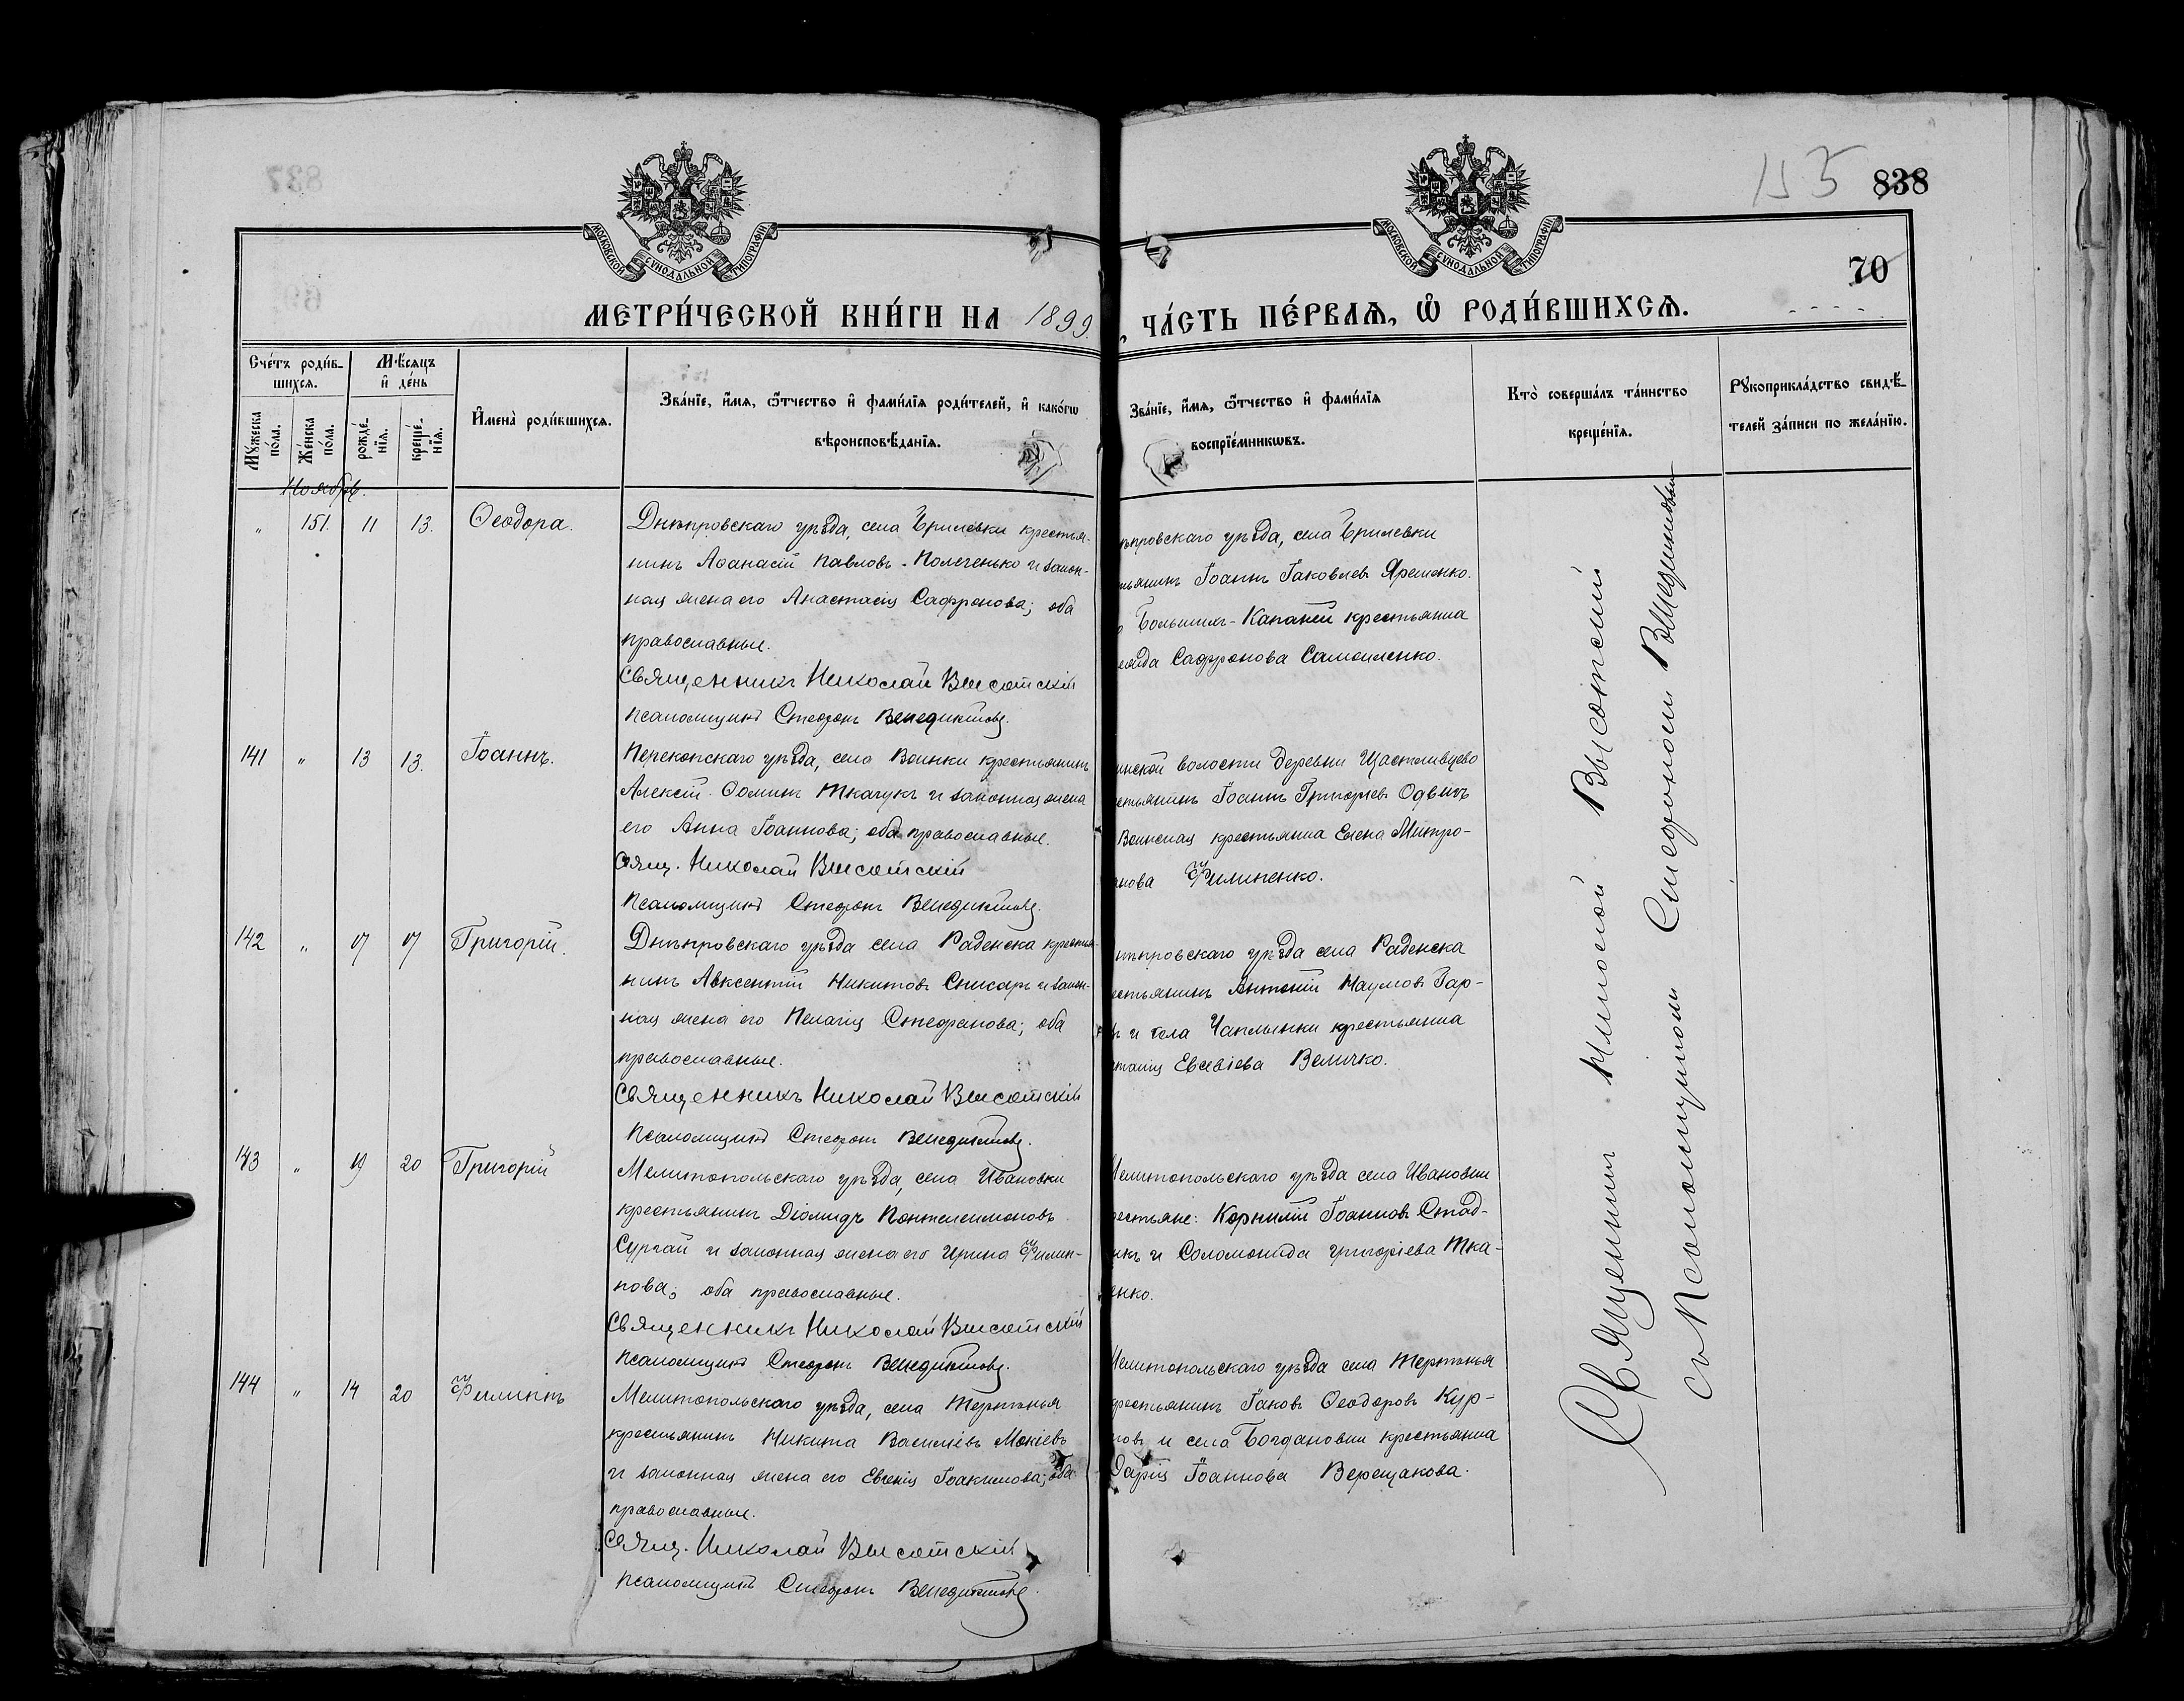 155 838
70
МОСКОВСКОЙ СѴНОДАЛЬНОЙ ТИПОГРАФІИ
МОСКОВСКОЙ СѴНОДАЛЬНОЙ ТИПОГРАФІИ
МЕТРИ́ЧЕСКОЙ КНИ́ГИ НА 1899.
, ЧА́СТЬ ПЕ́РВАѦ, Ѡ҆ РОДИ́ВШИХСѦ.
Сче́тъ роди́в-
шихсѧ.
Мꙋ́жеска по́ла.
Же́нска по́ла.
Мѣ́сѧцъ
и҆ де́нь
рожде́-
нїѧ.
креще́-
нїѧ.
И҆мена̀ роди́вшихсѧ.
Зва́нїе, и҆́мѧ, ѻ҆́тчество и҆ фами́лїѧ роди́телей, и҆ како́гѡ
вѣроисповѣ́данїѧ.
Зва́нїе, и҆́мѧ, ѻ҆́тчество и҆ фами́лїѧ
воспрїе́мникѡвъ.
Кто̀ соверша́лъ та́инство
креще́нїѧ.
Рꙋкоприкла́дство свидѣ́-
телей за́писи по жела́нїю.
Ноябрь.
" 151. 11 13. Ѳеодора.
Днѣпровскаго уѣзда, села Брилевки крестья-
нинъ Аѳанасій Павловъ Полегенько и закон-
ная жена его Анастасія Сафронова; оба
православные.
Священникъ Николай Высотскій
Псаломщикъ Стефанъ Венедиктовъ.
ѣпровскаго уѣзда, села Брилевки
ьянинъ Іоаннъ Іаковлевъ Яременко.
Большихъ-Копаней крестьянка
Сафронова Самойленко.
141 " 13 13. Іоаннъ.
Перекопскаго уѣзда, села Воинки крестьянинъ
Алексій Ѳоминъ Ткачукъ и законная жена
его Анна Іоаннова; оба православные.
Свящ. Николай Высотскій
Псаломщикъ Стефанъ Венедиктовъ.
инской волости деревни Щастливцево
естьянинъ Іоаннъ Григорьевъ
Воинская крестьянка Елена Митро-
анова Филипенко.
142 " 17 17 Григорій.
Днѣпровскаго уѣзда села Раденска крестья-
нинъ Авксентій Никитовъ Снисарь и закон-
ная жена его Пелагія Стефанова; оба
православные.
Священникъ Николай Высотскій
Псаломщикъ Стефанъ Венедиктовъ.
нѣпровскаго уѣзда села Раденска
естьянинъ Антоній Наумовъ Гар-
и села Чаплынки крестьянка
Евсевіева Величко.
143 " 19 20 Григорій
Мелитопольскаго уѣзда, села Ивановки
крестьянинъ Діомидъ Пантелеимоновъ
Сургай и законная жена его Ирина Филип-
пова; оба православные.
Священникъ Николай Высотскій
Псаломщикъ Стефанъ Венедиктовъ.
Мелитопольскаго уѣзда села Ивановки
рестьяне: Корнилій Іоанновъ Стад-
икъ и Соломонида Григоріева Тка-
енко.
144 " 14 20 Филиппъ
Мелитопольскаго уѣзда, села Терпѣнья
крестьянинъ Никита Василіевъ Мокіевъ
и законная жена его Евгенія Іоакимова; оба
православные.
Свящ. Николай Высотскій
Псаломщикъ Стефанъ Венедиктовъ.
Мелитопольскаго уѣзда села Терпѣнья
крестьянинъ Іаковъ Ѳеодоровъ Кур-
и села Богдановки крестьянка
Дарія Іоаннова Верещакова.
Священникъ Николай Высотскій
съ Псаломщикомъ Стефаномъ Венедиктовымъ